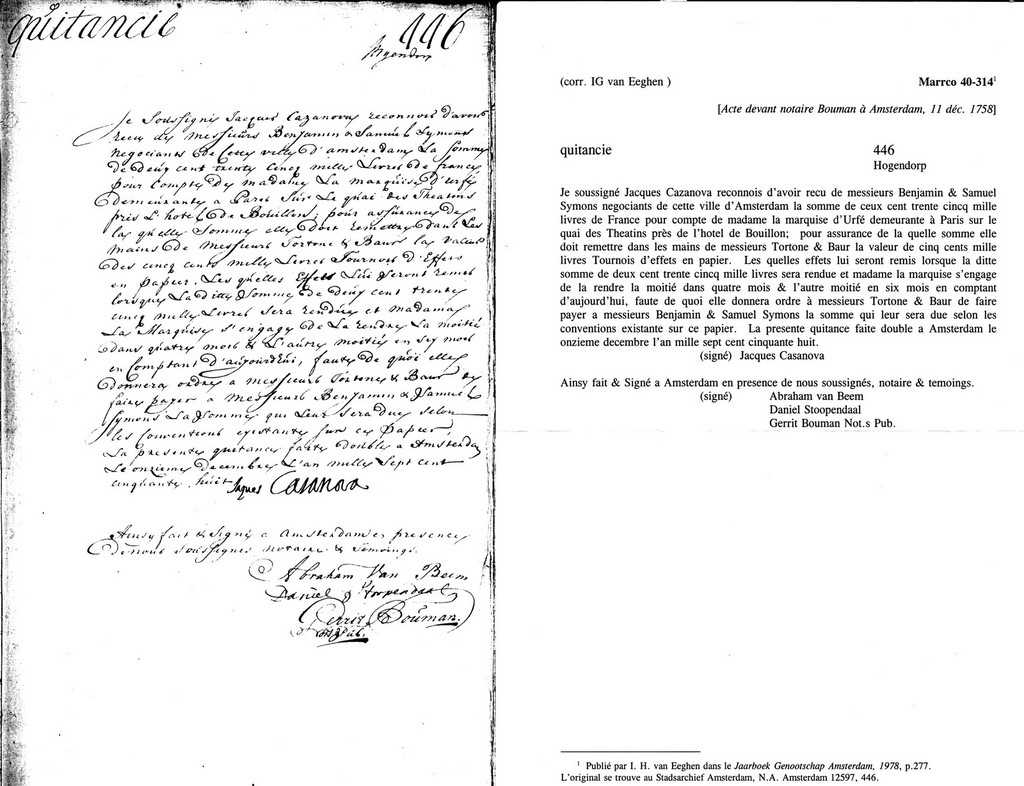 quitancie
446
Hogendorp
Je Soussignés Jacques Cazanova reconnois d'avoir
recu des messieurs Benjamin & Samuel Symons
negociants de cette ville d'amsterdam La Somme
de deux cent trente cinq mille Livres de france
pour compte de madame La marquise d'urfé
demeurante a Paris sur Le quai des Theatins
près L'hotel de Bouillon; pour assurance de
la quelle Somme elle doit remettre dans Les
mains de messieurs Tortone & Baur la valeur
des cinq cent mille Livres Tournois d'Effets
en papier. Les quelles Effets Lui Seront remis
lorsque La ditte Somme de deux cent trente
cinq mille Livres Sera rendue et madame
La Marquise S'engage de La rendre La moitié
dans quatre mois & L'autre moitié en Six mois
en comptant d'aujourd'hui, faute de quoi elle
donnera ordre a messieurs Tortone & Baur de
faire payer a messieurs Benjamin & Samuel
Symons La Somme qui Leur Sera due selon
les Conventions existante sur ce Papier
La presente quitance faite double a Amsterdam
Le onzieme decembre L'an mille Sept cent
cinquante huit Jaques Casanova
Ainsy fait & Signé a Amsterdam en presence
de nous Soussignés notaire & Temoings.
Abraham Van Beem
Daniel Stoopendaal
Gerrit Bouman.
Not. Pub.
(corr. IG van Eeghen )
Marrco 40-314¹
[Acte devant notaire Bouman à Amsterdam, 11 déc. 1758]
quitancie
446
Hogendorp
Je soussigné Jacques Cazanova reconnois d'avoir recu de messieurs Benjamin & Samuel
Symons negociants de cette ville d'Amsterdam la somme de ceux cent trente cinq mille
livres de France pour compte de madame la marquise d'Urfé demeurante à Paris sur le
quai des Theatins près de l'hotel de Bouillon; pour assurance de la quelle somme elle
doit remettre dans les mains de messieurs Tortone & Baur la valeur de cinq cents mille
livres Tournois d'effets en papier. Les quelles effets lui seront remis lorsque la ditte
somme de deux cent trente cinq mille livres sera rendue et madame la marquise s'engage
de la rendre la moitié dans quatre mois & l'autre moitié en six mois en comptant
d'aujourd'hui, faute de quoi elle donnera ordre à messieurs Tortone & Baur de faire
payer a messieurs Benjamin & Samuel Symons la somme qui leur sera due selon les
conventions existante sur ce papier. La presente quitance faite double a Amsterdam le
onzieme decembre l'an mille sept cent cinquante huit.
(signé) Jacques Casanova
Ainsy fait & Signé a Amsterdam en presence de nous soussignés, notaire & temoings.
(signé) Abraham van Beem
Daniel Stoopendaal
Gerrit Bouman Not.s Pub.
¹ Publié par I. H. van Eeghen dans le Jaarboek Genootschap Amsterdam, 1978, p.277.
L'original se trouve au Stadsarchief Amsterdam, N.A. Amsterdam 12597, 446.